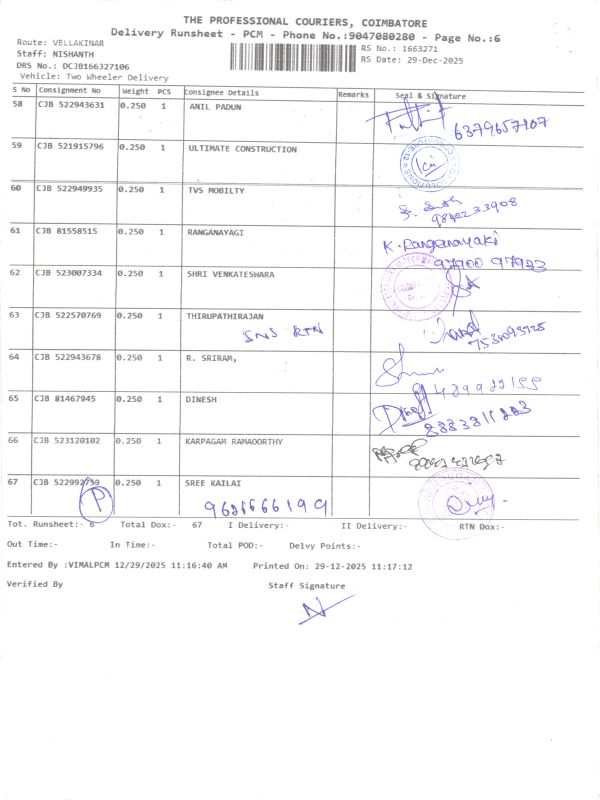 THE PROFESSIONAL COURIERS, COIMBATORE
Delivery Runsheet - PCM - Phone No.:9047080280 - Page No.:6
Route: VELLAKINAR
RS No.: 1663271
Staff: NISHANTH
RS Date: 29-Dec-2025
DRS No.: DCJB166327106
Vehicle: Two Wheeler Delivery
S No Consignment No Weight PCS Consignee Details Remarks Seal & Signature
58 CJB 522943631 0.250 1 ANIL PADUN
6379657107
59 CJB 521915796 0.250 1 ULTIMATE CONSTRUCTION
60 CJB 522949935 0.250 1 TVS MOBILTY
9842233908
61 CJB 81558515 0.250 1 RANGANAYAGI K. Ranganayaki
62 CJB 523007334 0.250 1 SHRI VENKATESWARA
63 CJB 522570769 0.250 1 THIRUPATHIRAJAN
64 CJB 522943678 0.250 1 R. SRIRAM,
65 CJB 81467945 0.250 1 DINESH
66 CJB 523120102 0.250 1 KARPAGAM RAMAOORTHY
67 CJB 522992759 0.250 1 SREE KAILAI
P
Tot. Runsheet:- 6 Total Dox:- 67 I Delivery:- II Delivery:- RTN Dox:-
Out Time:- In Time:- Total POD:- Delvy Points:-
Entered By :VIMALPCM 12/29/2025 11:16:40 AM Printed On: 29-12-2025 11:17:12
Verified By Staff Signature